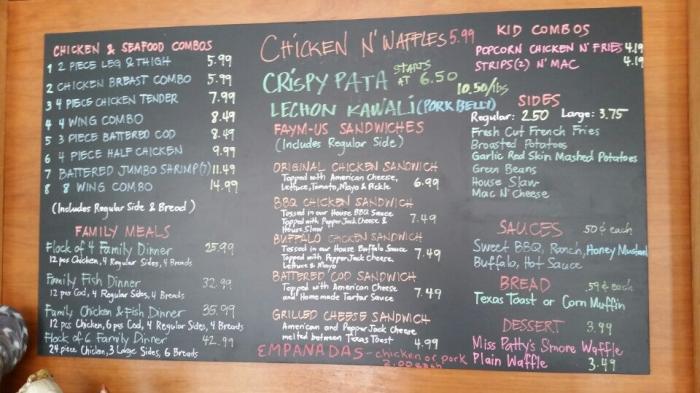 CHICKEN & SEAFOOD COMBOS
1 2 PIECE LEG & THIGH 5.99
2 CHICKEN BREAST COMBO 5.99
3 4 PIECE CHICKEN TENDER 7.99
4 4 WING COMBO 8.49
5 3 PIECE BATTERED COD 8.49
6 4 PIECE HALF CHICKEN 9.99
7 BATTERED JUMBO SHRIMP(7) 11.49
8 8 WING COMBO 14.99
(Includes Regular Side & Bread)
FAMILY MEALS
Flock of 4 Family Dinner 25.99
12 pcs Chicken, 4 Regular Sides, 4 Breads
Family Fish Dinner 32.99
12 pcs Cod, 4 Regular Sides, 4 Breads
Family Chicken & Fish Dinner 35.99
12 pcs Chicken, 6 pcs Cod, 4 Regular Sides, 4 Breads
Flock of 6 Family Dinner 42.99
24 piece Chicken, 3 Large Sides, 6 Breads
CHICKEN N' WAFFLES 5.99
CRISPY PATA STARTS AT 6.50
10.50/lbs
LECHON KAWALI (PORK BELLY)
FAYM-US SANDWICHES
(Includes Regular Side)
ORIGINAL CHICKEN SANDWICH
Topped with American Cheese,
Lettuce, Tomato, Mayo & Pickle 6.99
BBQ CHICKEN SANDWICH
Tossed in our House BBQ Sauce
Topped with Pepper Jack Cheese & 7.49
House Slaw
BUFFALO CHICKEN SANDWICH
Tossed in our House Buffalo Sauce
Topped with Pepper Jack Cheese, 7.49
Lettuce & Mayo
BATTERED COD SANDWICH
Topped with American Cheese
and Homemade Tartar Sauce 7.49
GRILLED CHEESE SANDWICH
American and Pepper Jack Cheese
melted between Texas Toast 4.99
EMPANADAS - chicken or pork
2.00 each
KID COMBOS
POPCORN CHICKEN N' FRIES 4.19
STRIPS(2) N' MAC 4.19
SIDES
Regular: 2.50 Large: 3.75
Fresh Cut French Fries
Broasted Potatoes
Garlic Red Skin Mashed Potatoes
Green Beans
House Slaw
Mac N' Cheese
SAUCES .50 ¢ each
Sweet BBQ, Ranch, Honey Mustard
Buffalo, Hot Sauce
BREAD .59 ¢ each
Texas Toast or Corn Muffin
DESSERT 3.99
Miss Patty's S'more Waffle
Plain Waffle 3.49